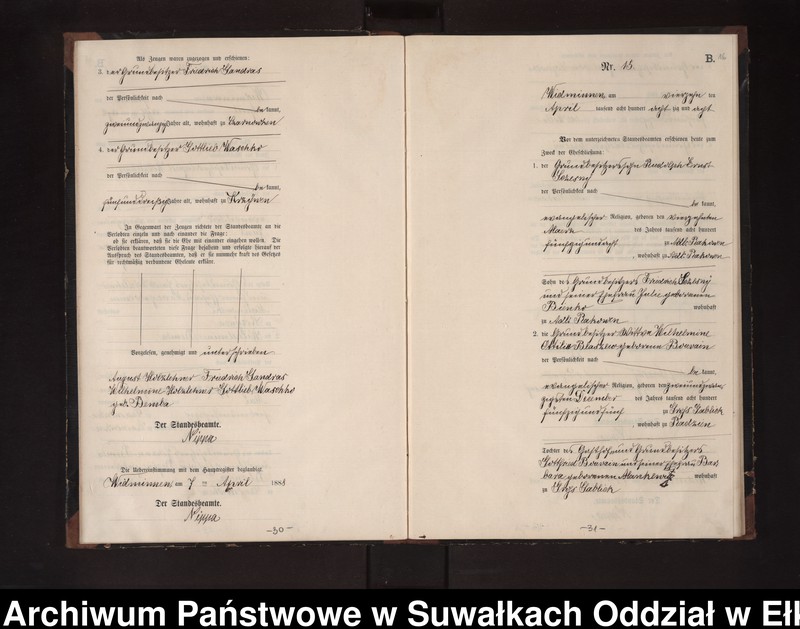 Als Zeugen waren zugezogen und erschienen:
3. der Grundbesitzer Friedrich Gandras
der Persönlichkeit nach
be kannt,
zweiundzwanzig Jahre alt, wohnhaft zu Czarnowken
4. der Grundbesitzer Gottlieb Waschko
der Persönlichkeit nach
be kannt,
fünfunddreißig Jahre alt, wohnhaft zu Krzywen
In Gegenwart der Zeugen richtete der Standesbeamte an die
Verlobten einzeln und nach einander die Frage:
ob sie erklären, daß sie die Ehe mit einander eingehen wollen. Die
Verlobten beantworteten diese Frage bejahend und erfolgte hierauf der
Ausspruch des Standesbeamten, daß er sie nunmehr kraft des Gesetzes
für rechtmäßig verbundene Eheleute erkläre.
Vorgelesen, genehmigt und unterschrieben
August Holzlehner Friedrich Gandras
Wilhelmine Holzlehner Gottlieb Waschko
geb. Bemba
Der Standesbeamte.
Nippa
Die Uebereinstimmung mit dem Hauptregister beglaubigt
Widminnen am 7 ten April 1888
Der Standesbeamte.
Nippa
-30-
B.
Nr. 15.
Widminnen am vierzehn ten
April tausend acht hundert acht zig und acht
Vor dem unterzeichneten Standesbeamten erschienen heute zum
Zweck der Eheschließung:
1. der Grundbesitzerssohn Rudolph Ernst
der Persönlichkeit nach
be kannt,
evangelischer Religion, geboren den vierzehnten
Maerz des Jahres tausend acht hundert
fünfzigundacht zu Adl.
, wohnhaft zu Adl.
Sohn des Grundbesitzers Friedrich
und seiner Ehefrau Julie geborenen
Bienko wohnhaft
zu Adl.
2. die Grundbesitzer Wittwe Wilhelmine
Ottilie geborene
der Persönlichkeit nach
be kannt,
evangelischer Religion, geboren den zweiundzwan-
zigsten December des Jahres tausend acht hundert
fünfzigundfünf zu Groß Gablick
, wohnhaft zu Radzien
Tochter des Gasthof und Grundbesitzers
Gottfried und seiner Ehefrau Bar-
bara geborenen wohnhaft
zu Groß Gablick
-31-
Archiwum Państwowe w Suwałkach Oddział w Ełk